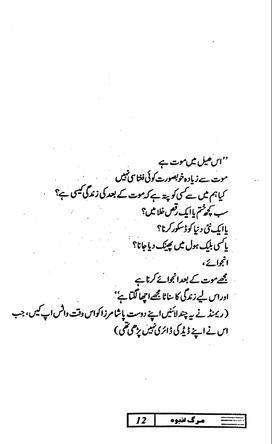 "اس کھیل میں موت ہے
موت سے زیادہ خوبصورت کوئی فنتاسی نہیں
کیا ہم میں سے کسی کو پتہ ہے کہ موت کے بعد کی زندگی کیسی ہے؟
سب کچھ ختم یا ایک رقص خلا میں؟
یا ایک نئی دنیا کو ڈسکور کرنا؟
یا کسی بلیک ہول میں پھینک دیا جانا؟
انجوائے،
مجھے موت کے بعد انجوائے کرنا ہے
اور اس لیے زندگی کا سناٹا مجھے اچھا لگتا ہے"
(ریمنڈ نے یہ چند لائنیں اپنے دوست پاشا مرزا کو اس وقت واٹس اپ کیں، جب
اس نے اپنے ڈیڈ کی ڈائری نہیں پڑھی تھی)
مرگ انبوہ
12